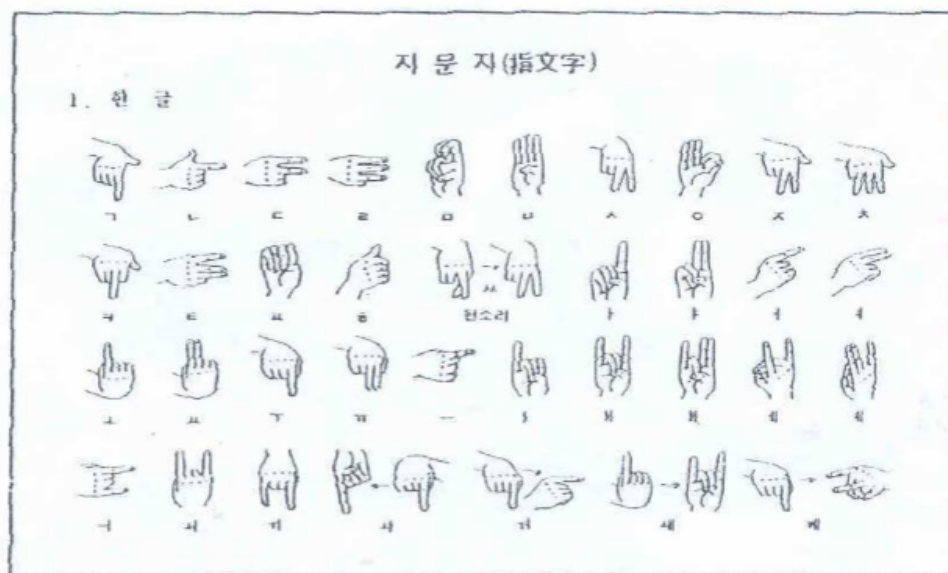 지 문 자(指文字)
1. 한 글
ㄱ ㄴ ㄷ ㄹ ㅁ ㅂ ㅅ ㅇ ㅈ ㅊ
ㅋ ㅌ ㅍ ㅎ ㅆ 된소리 ㅏ ㅑ ㅓ ㅕ
ㅗ ㅛ ㅜ ㅠ ㅡ ㅣ ㅐ ㅒ ㅔ ㅖ
ㅢ ㅚ ㅟ ㅘ ㅝ ㅙ ㅞ